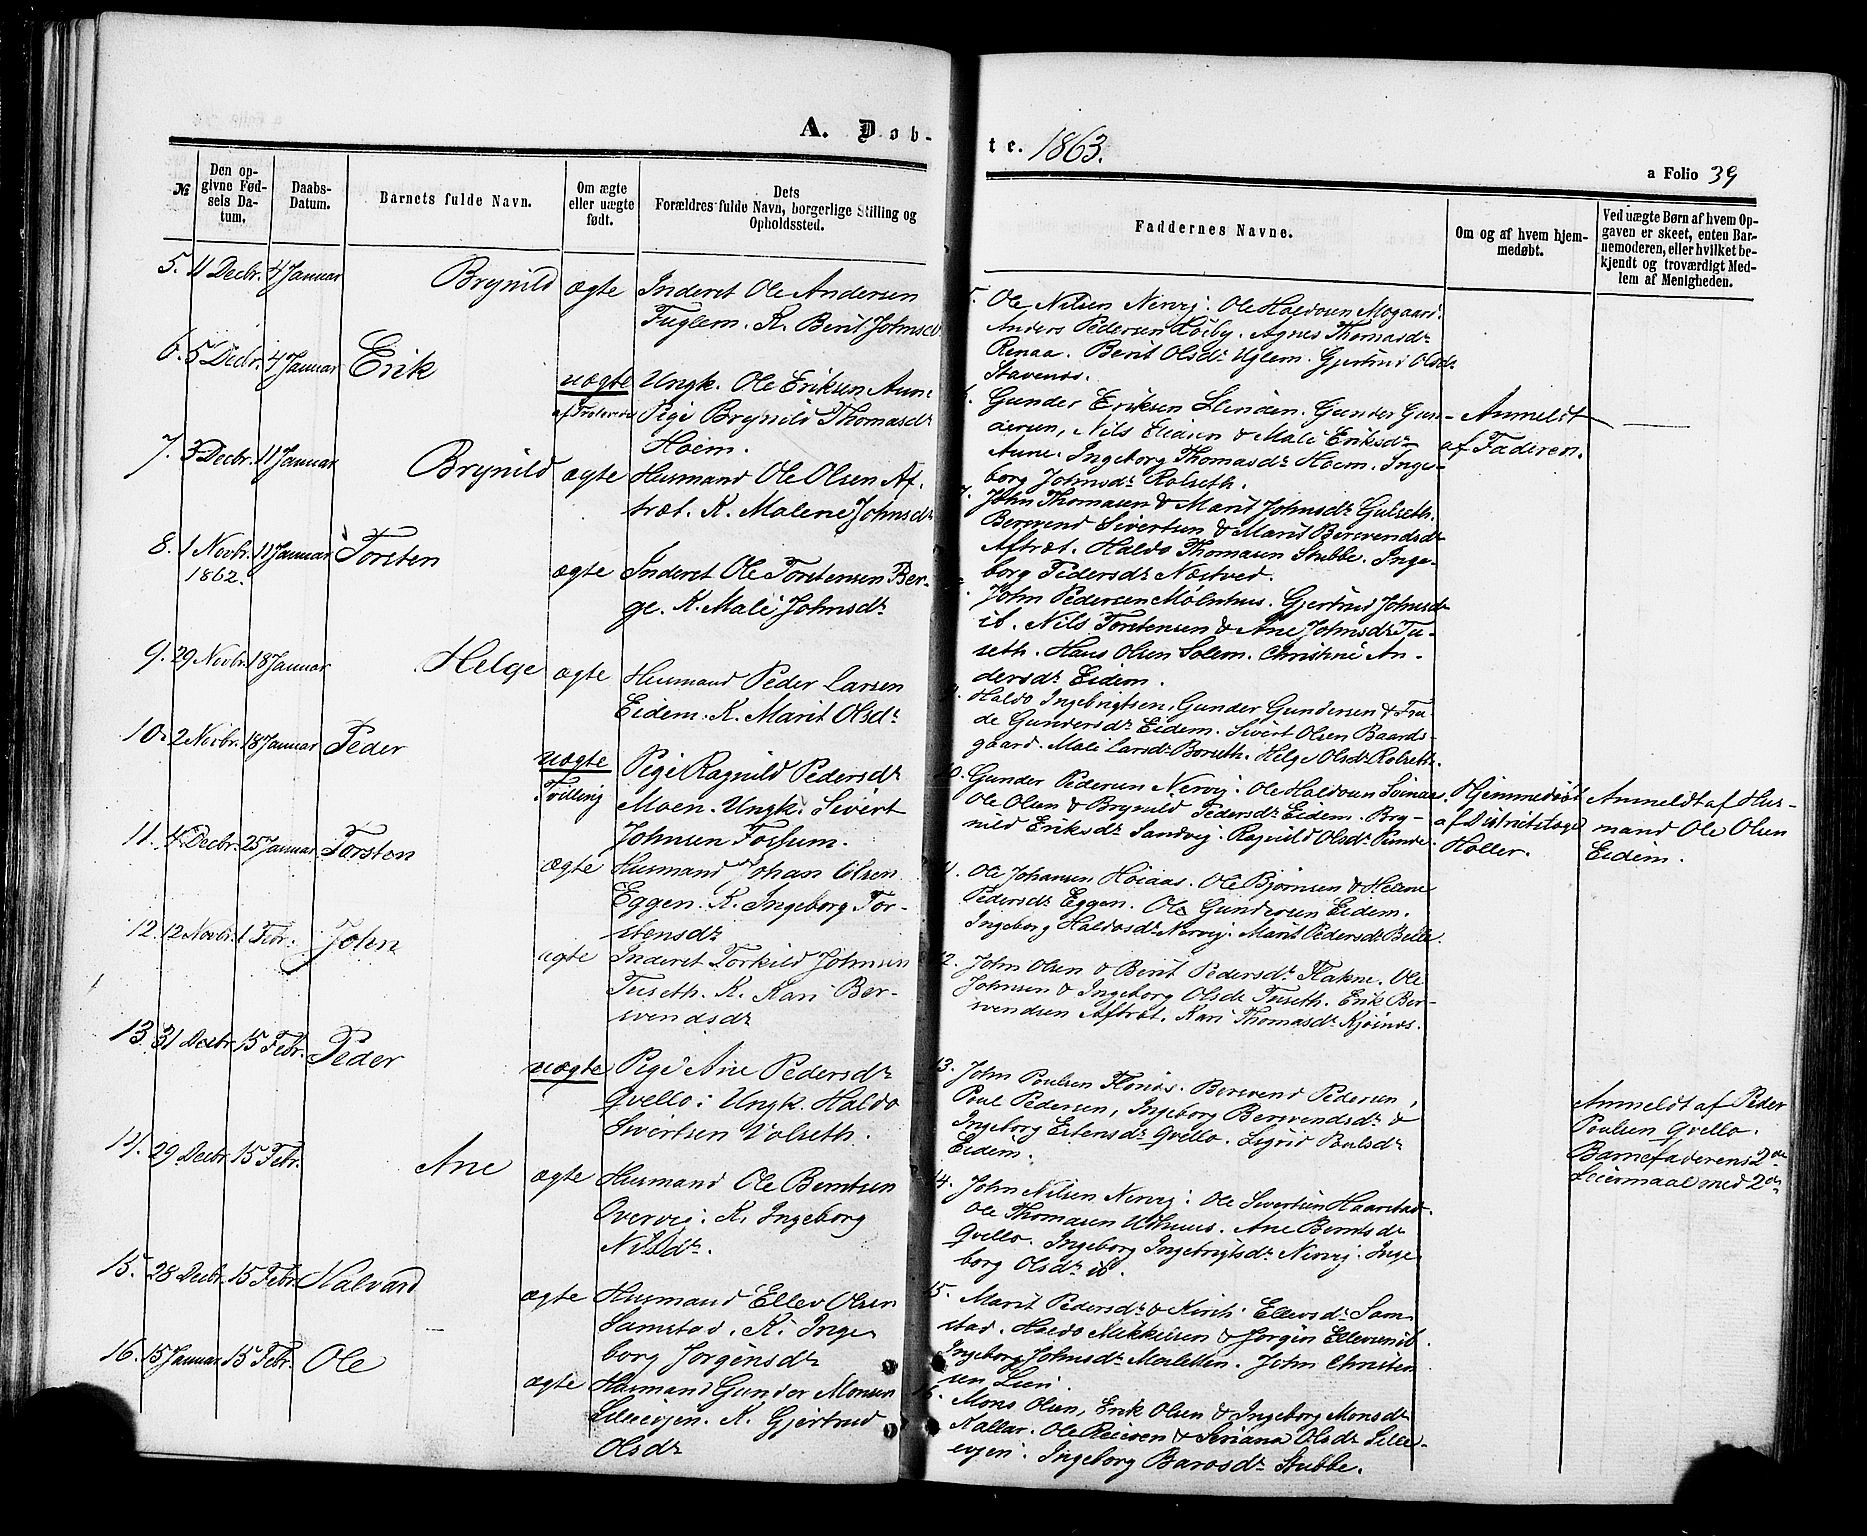 A. Døb-
te. 1863.
a Folio 39
№
Den op-
givne Fød-
sels Da-
tum.
Daabs-
Datum.
Barnets fulde Navn.
Om ægte
eller uægte
født.
Dets
Forældres fulde Navn, borgerlige Stilling og
Opholdssted.
Faddernes Navne.
Om og af hvem hjem-
medøbt.
Ved uægte Børn af hvem Op-
gaven er skeet, enten Bar-
nemoderen, eller hvilket be-
kjendt og troværdigt Med-
lem af Menigheden.
5. 11 Decbr. 4 Januar Brynild ægte Inderst Ole Andersen
Fuglem. K. Berit Johnsd.
5. Ole Nilsen Nervig. Ole Haldosen Mogaard.
Anders Pedersen Løsby. Agnes Thomasdr
Renaa. Berit Olsdr Uglem. Gjertrud Olsdr
Stavenæs.
6. 5 Decbr. 4 Januar Erik uægte Ungk. Ole Eriksen Aune
Pige Brynild Thomasdr
Hoem.
6. Gunder Eriksen Slinden. Gunder Gun-
dersen, Nils Eliasen & Mali Eriksdr
Aune. Ingeborg Thomasdr Hoem. Inge-
borg Johnsdr Rolseth.
Anmeldt
af Faderen.
7. 3 Decbr. 11 Januar Brynild ægte Husmand Ole Olsen Af-
træt. K. Malene Johnsdr
7. John Thomasen & Marit Johnsdr Gulseth.
Bersvend Sivertsen & Marit Bersvendsdr
Aftræt. Haldo Thomasen Stubbe. Inge-
borg Pedersdr Næstved.
8. 1 Novbr. 11 Januar Torsten
1862.
ægte Inderst Ole Torstensen Ber-
ge. K. Mali Johnsdr
John Pedersen Mølnhus. Gjertrud Johnsdr
ib. Nils Torstensen & Ane Johnsdr Tu-
seth. Hans Olsen Solem. Christine An-
dersdr Eidem.
9. 29 Novbr. 18 Januar Helge ægte Husmand Peder Larsen
Eidem. K. Marit Olsdr
9. Haldo Ingebrigtsen, Gunder Gundersen & Tru-
de Gundersdr Eidem. Sivert Olsen Baards-
gaard. Mali Larsdr Borseth. Helge Olsdr Rolseth.
10. 2 Novbr. 18 Januar Peder uægte
Tvilling
Pige Ragnild Pedersdr
Moen. Ungk. Sivert
Johnsen Forsum.
10. Gunder Pedersen Nervig. Ole Haldosen Svinaas.
Ole Olsen & Brynild Pedersdr Eidem. Bry-
nild Eriksdr Sandvig. Ragnild Olsdr Runde.
Hjemmedøbt
af Distriktslæge
Holler.
Anmeldt af Hus-
mand Ole Olsen
Eidem.
11. 4 Decbr. 25 Januar Torsten ægte Husmand Johan Olsen
Eggen. K. Ingeborg Tor-
stensdr
11. Ole Johansen Høiaas. Ole Bjørnsen & Helene
Pedersdr Eggen. Ole Gundersen Eidem.
Ingeborg Haldosdr Nervig. Marit Pedersdr Belle.
12. 12 Novbr. 1 Febr. John ægte Inderst Torkild Johnsen
Tuseth. K. Kari Ber-
svendsdr
12. John Olsen & Berit Pedersdr Flakne. Ole
Johnsen & Ingeborg Olsdr Tuseth. Erik Ber-
svendsen Aftræt. Kari Thomasdr Kjøsnæs.
13. 31 Decbr. 15 Febr. Peder uægte Pige Ane Pedersdr
Qvello: Ungk. Haldo
Sivertsen Volseth.
13. John Poulsen Flønæs. Bersvend Pedersen,
Poul Pedersen, Ingeborg Bersvendsdr &
Ingeborg Estensdr Qvello. Sigrid Poulsdr
Eidem.
Anmeldt af Peder
Poulsen Qvello.
Barnefaderens 2de
Leiermaal med 2de
14. 29 Decbr. 15 Febr. Ane ægte Husmand Ole Berntsen
Overvig. K. Ingeborg
Nilsdr.
14. John Nilsen Nervig. Ole Sivertsen Haarstad.
Ole Thomasen Uthuus. Ane Berntsdr
Qvello. Ingeborg Ingebrigtsdr Nervig. Inge-
borg Olsdr ib.
15. 28 Decbr. 15 Febr. Halvard ægte Husmand Ellev Olsen
Samstad. K. Inge-
borg Jørgensdr
15. Marit Pedersdr & Kirsti Ellevsdr Sam-
stad. Haldo Mikkelsen & Jørgen Ellevsen ib.
Ingeborg Johnsdr Mosletten. John Christen-
sen Lien.
16. 15 Januar 15 Febr. Ole ægte Husmand Gunder Monsen
Lilleevjen. K. Gjertrud
Olsdr
16. Mons Olsen, Erik Olsen & Ingeborg Monsdr
Kallar. Ole Reiersen & Seriana Olsdr Lille-
evjen. Ingeborg Barosdr Stubbe.